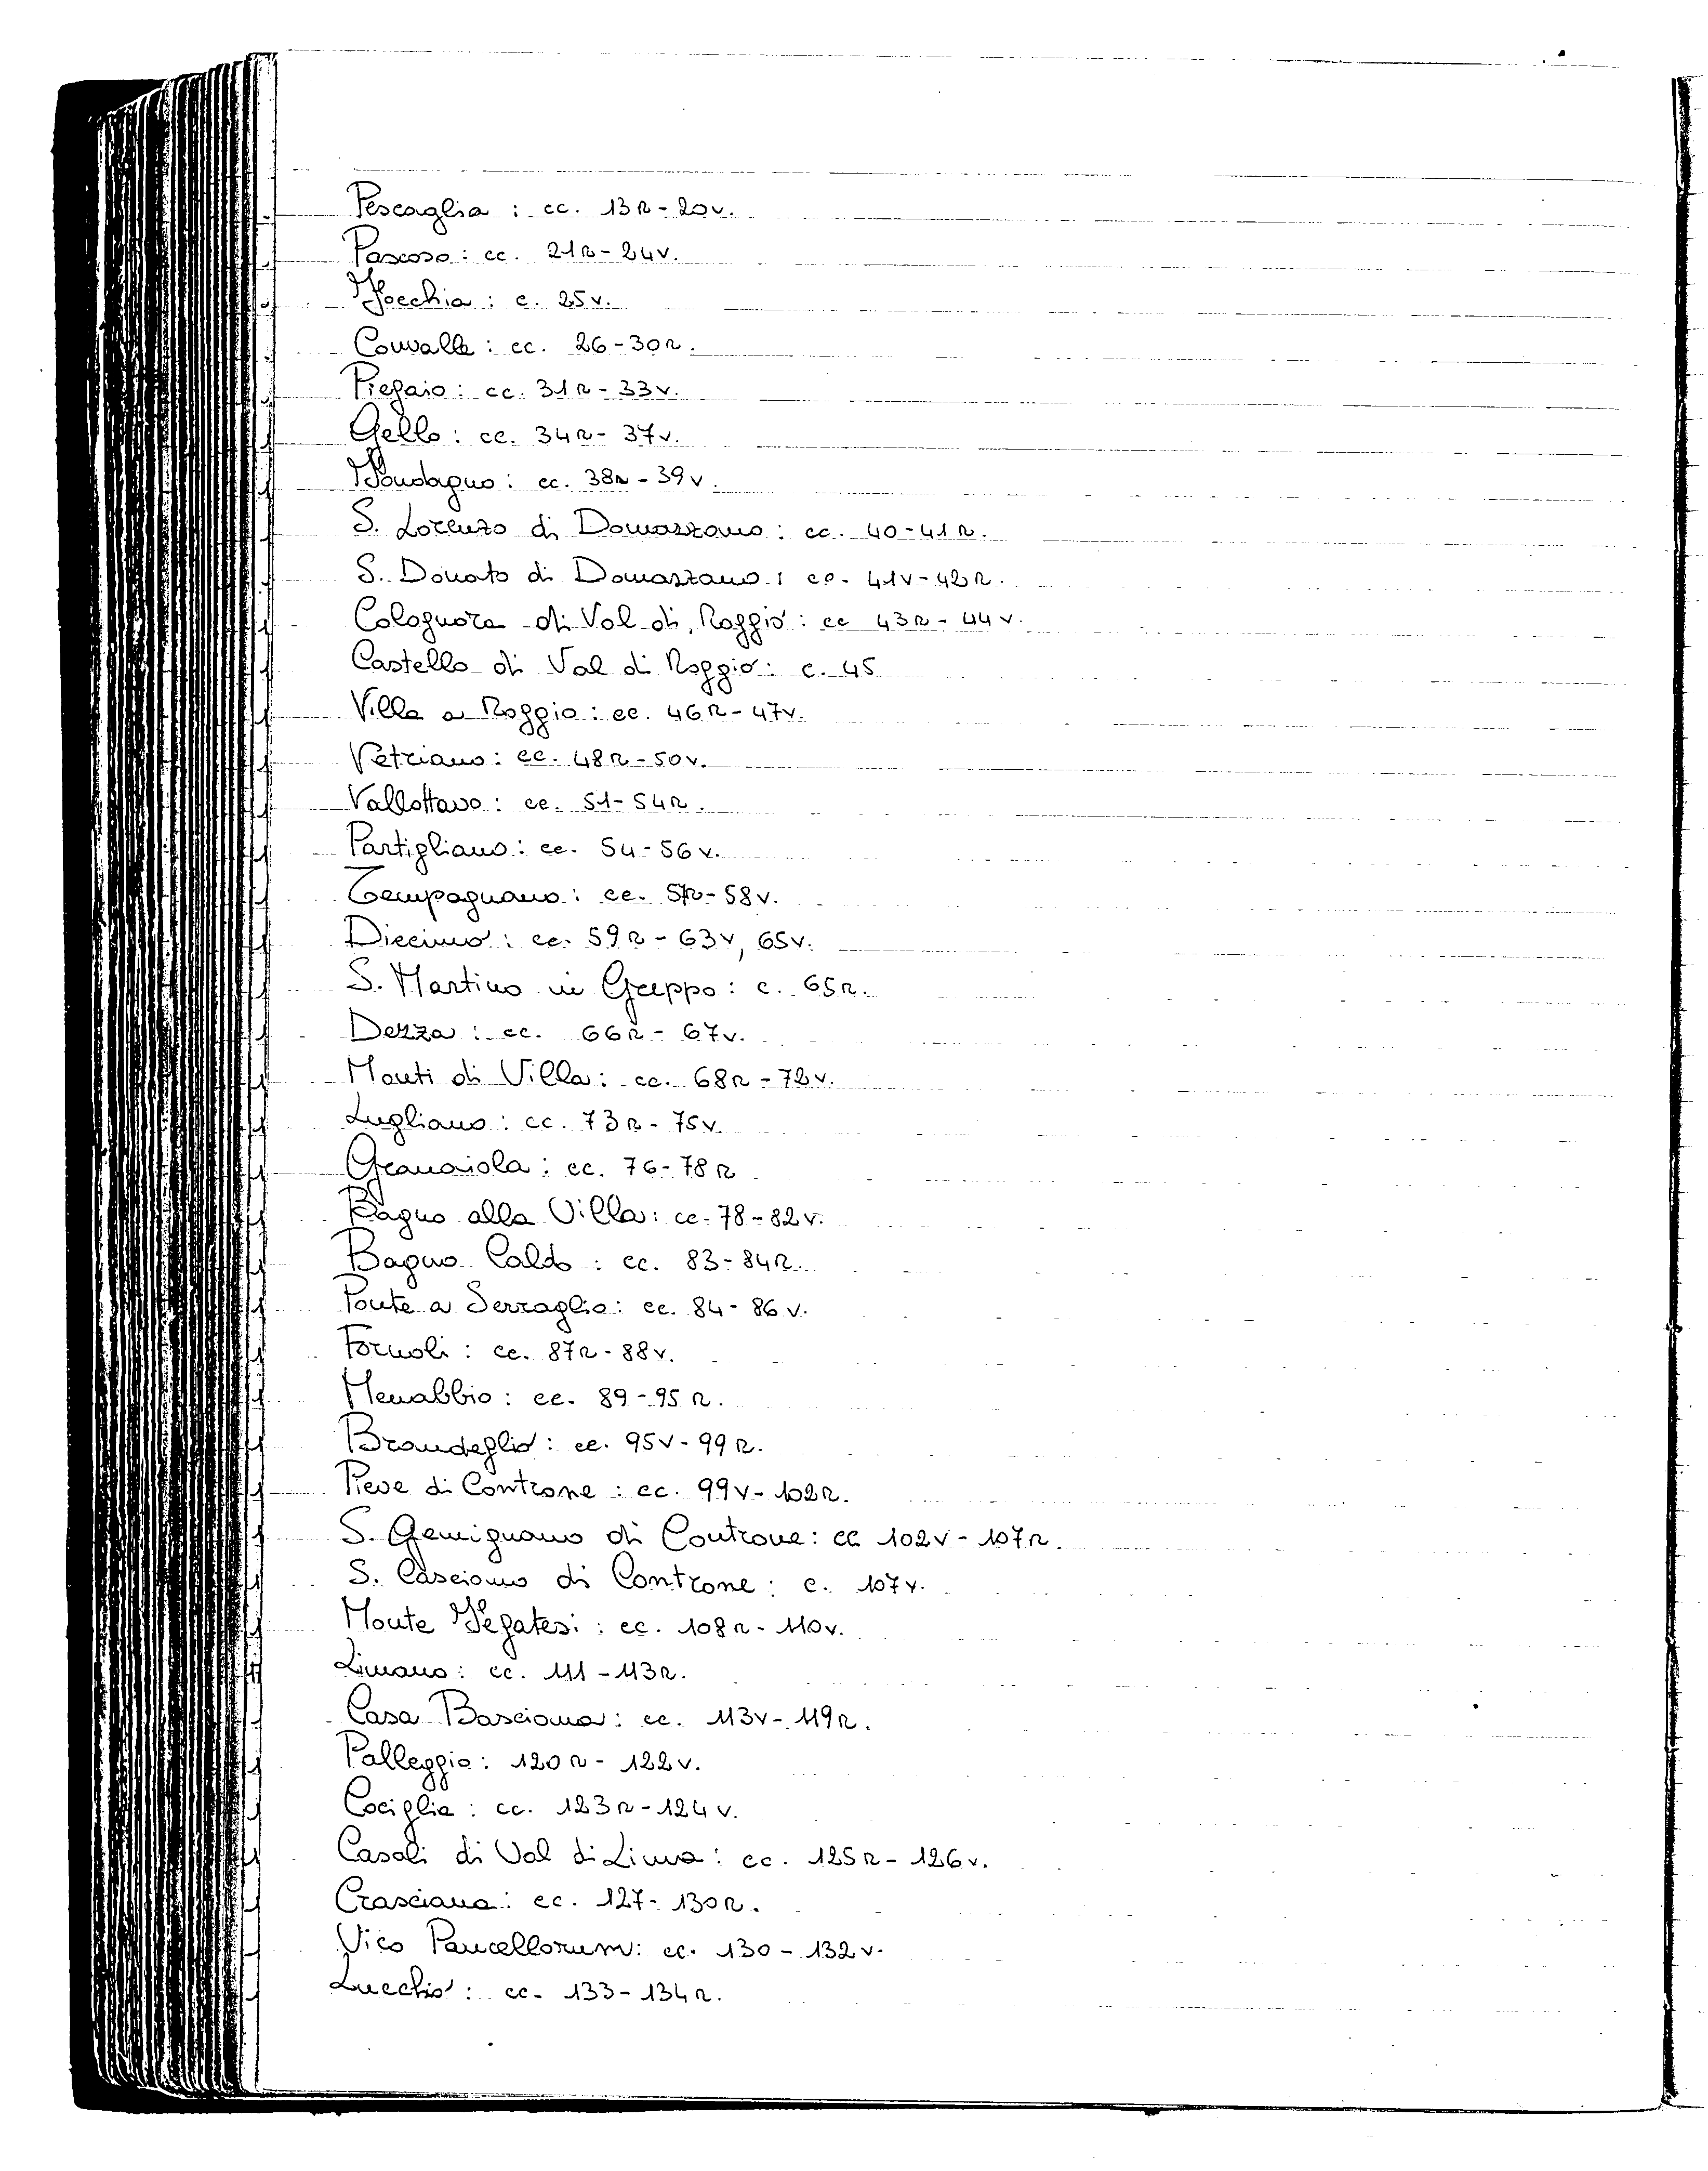 Pescaglia : cc. 13r - 20v.
Pascoso : cc. 21r - 24v.
Focchia : c. 25v.
Convalle : cc. 26 - 30r.
Piegaio : cc. 31r - 33v.
Gello : cc. 34r - 37v.
Fondagno : cc. 38r - 39v.
S. Lorenzo di Domazzano : cc. 40 - 41r.
S. Donato di Domazzano : cc. 41v - 42r.
Colognora di Val di Roggio : cc 43r - 44v.
Castello di Val di Roggio : c. 45
Villa a Roggio : cc. 46r - 47v.
Vetriano : cc. 48r - 50v.
Vallottavo : cc. 51 - 54r.
Partigliano : cc. 54 - 56v.
Tempagnano : cc. 57r - 58v.
Diecimo : cc. 59r - 63v, 65v.
S. Martino in Greppo : c. 65r.
Dezza : cc. 66r - 67v.
Monti di Villa : cc. 68r - 72v.
Lugliano : cc. 73r - 75v.
Granaiola : cc. 76 - 78r
Bagno alla Villa : cc. 78 - 82v.
Bagno Caldo : cc. 83 - 84r.
Ponte a Serraglio : cc. 84 - 86v.
Fornoli : cc. 87r - 88v.
Menabbio : cc. 89 - 95r.
Brandeglio : cc. 95v - 99r.
Pieve di Controne : cc. 99v - 102r.
S. Gemignano di Controne : cc 102v - 107r.
S. Casciano di Controne : c. 107v.
Monte Fegatesi : cc. 108r - 110v.
Limano : cc. 111 - 113r.
Casa Basciana : cc. 113v - 119r.
Palleggio : 120r - 122v.
Cociglia : cc. 123r - 124v.
Casoli di Val di Lima : cc. 125r - 126v.
Crasciana : cc. 127 - 130r.
Vico Pancellorum : cc. 130 - 132v.
Lucchio : cc. 133 - 134r.